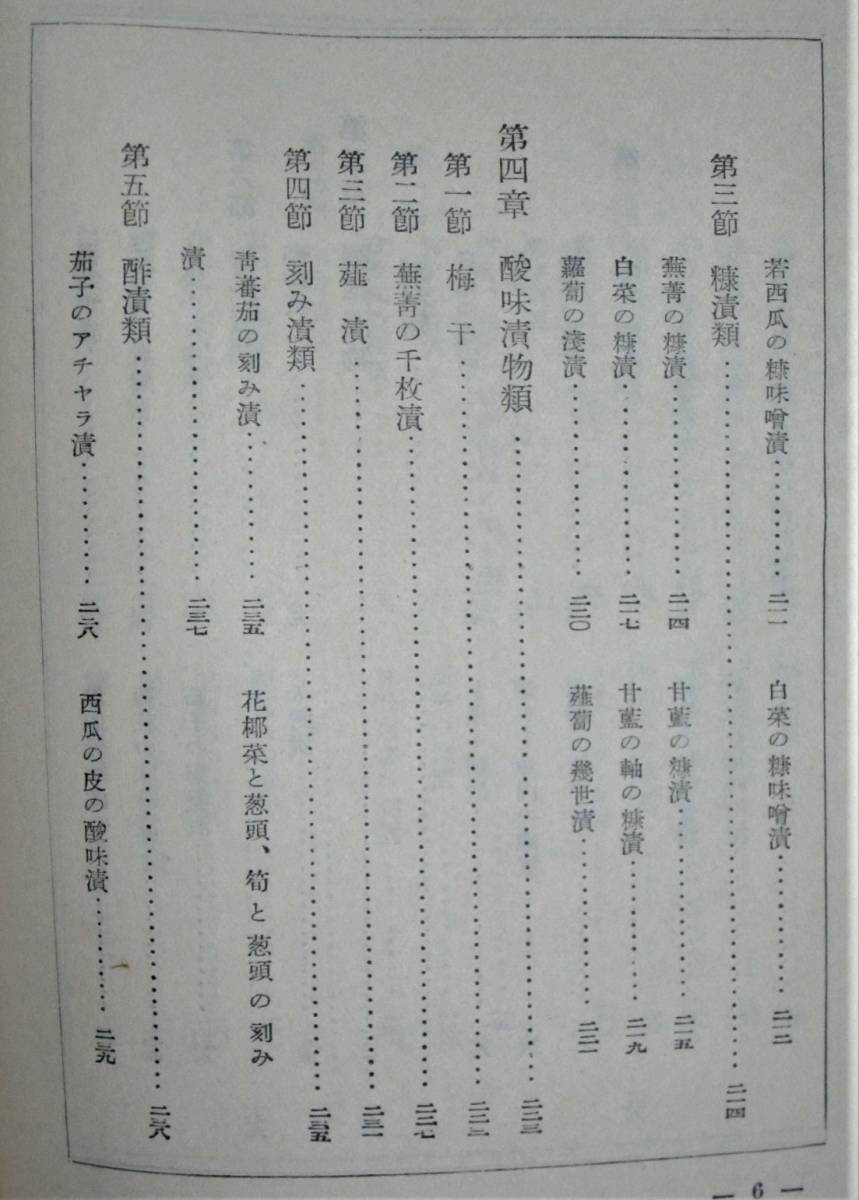 若西瓜の糠味噌漬…………二一一
白菜の糠味噌漬…………二一二
第三節 糠漬類…………二一四
蕪菁の糠漬…………二一四
甘藍の糠漬…………二一五
白菜の糠漬…………二一七
甘藍の軸の糠漬…………二一九
蘿蔔の淺漬…………二二〇
蘿蔔の幾世漬…………二二一
第四章 酸味漬物類…………二二三
第一節 梅干…………二二三
第二節 蕪菁の千枚漬…………二二七
第三節 薤漬…………二三一
第四節 刻み漬類…………二三五
靑蕃茄の刻み漬…………二三五
花椰菜と葱頭、筍と葱頭の刻み
漬…………二三七
第五節 酢漬類…………二三八
茄子のアチヤラ漬…………二三八
西瓜の皮の酸味漬…………二三九
— 6 —